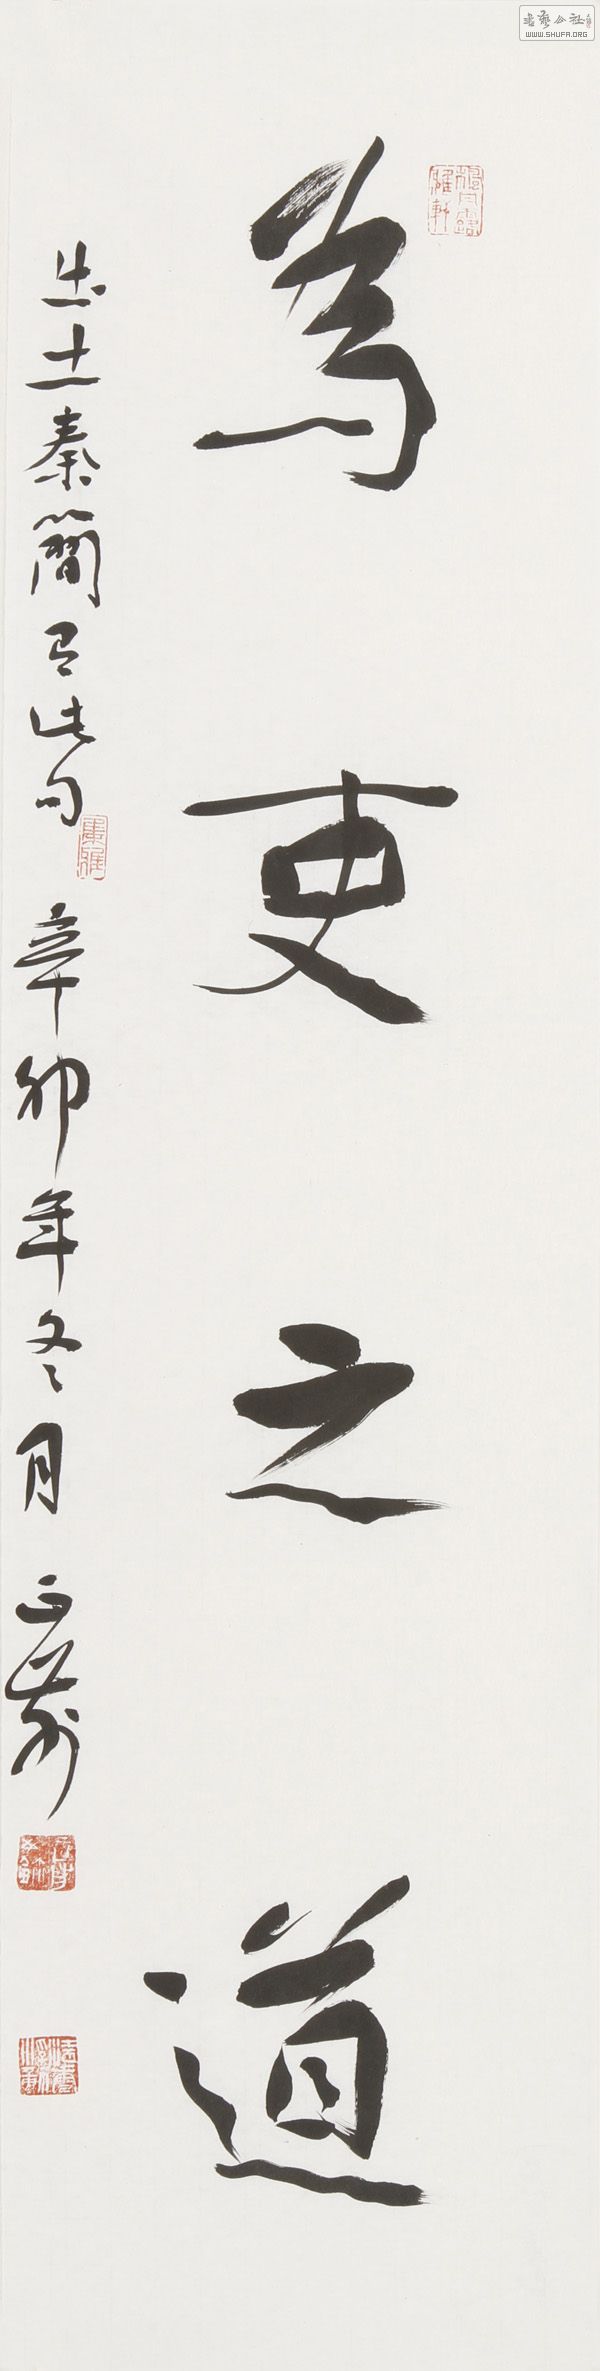 書藝公社
WWW.SHUFA.ORG
為吏之道
出土秦簡有此句
辛卯年冬月